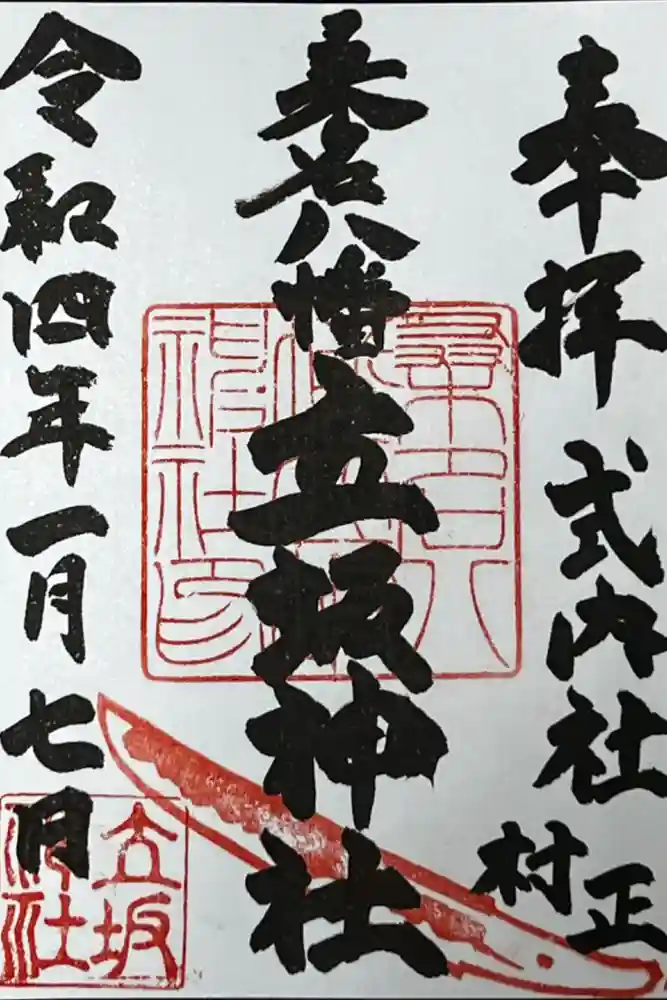 奉拝 式内社
村正
桑名八幡 立坂神社
令和四年一月七日
立坂
神社